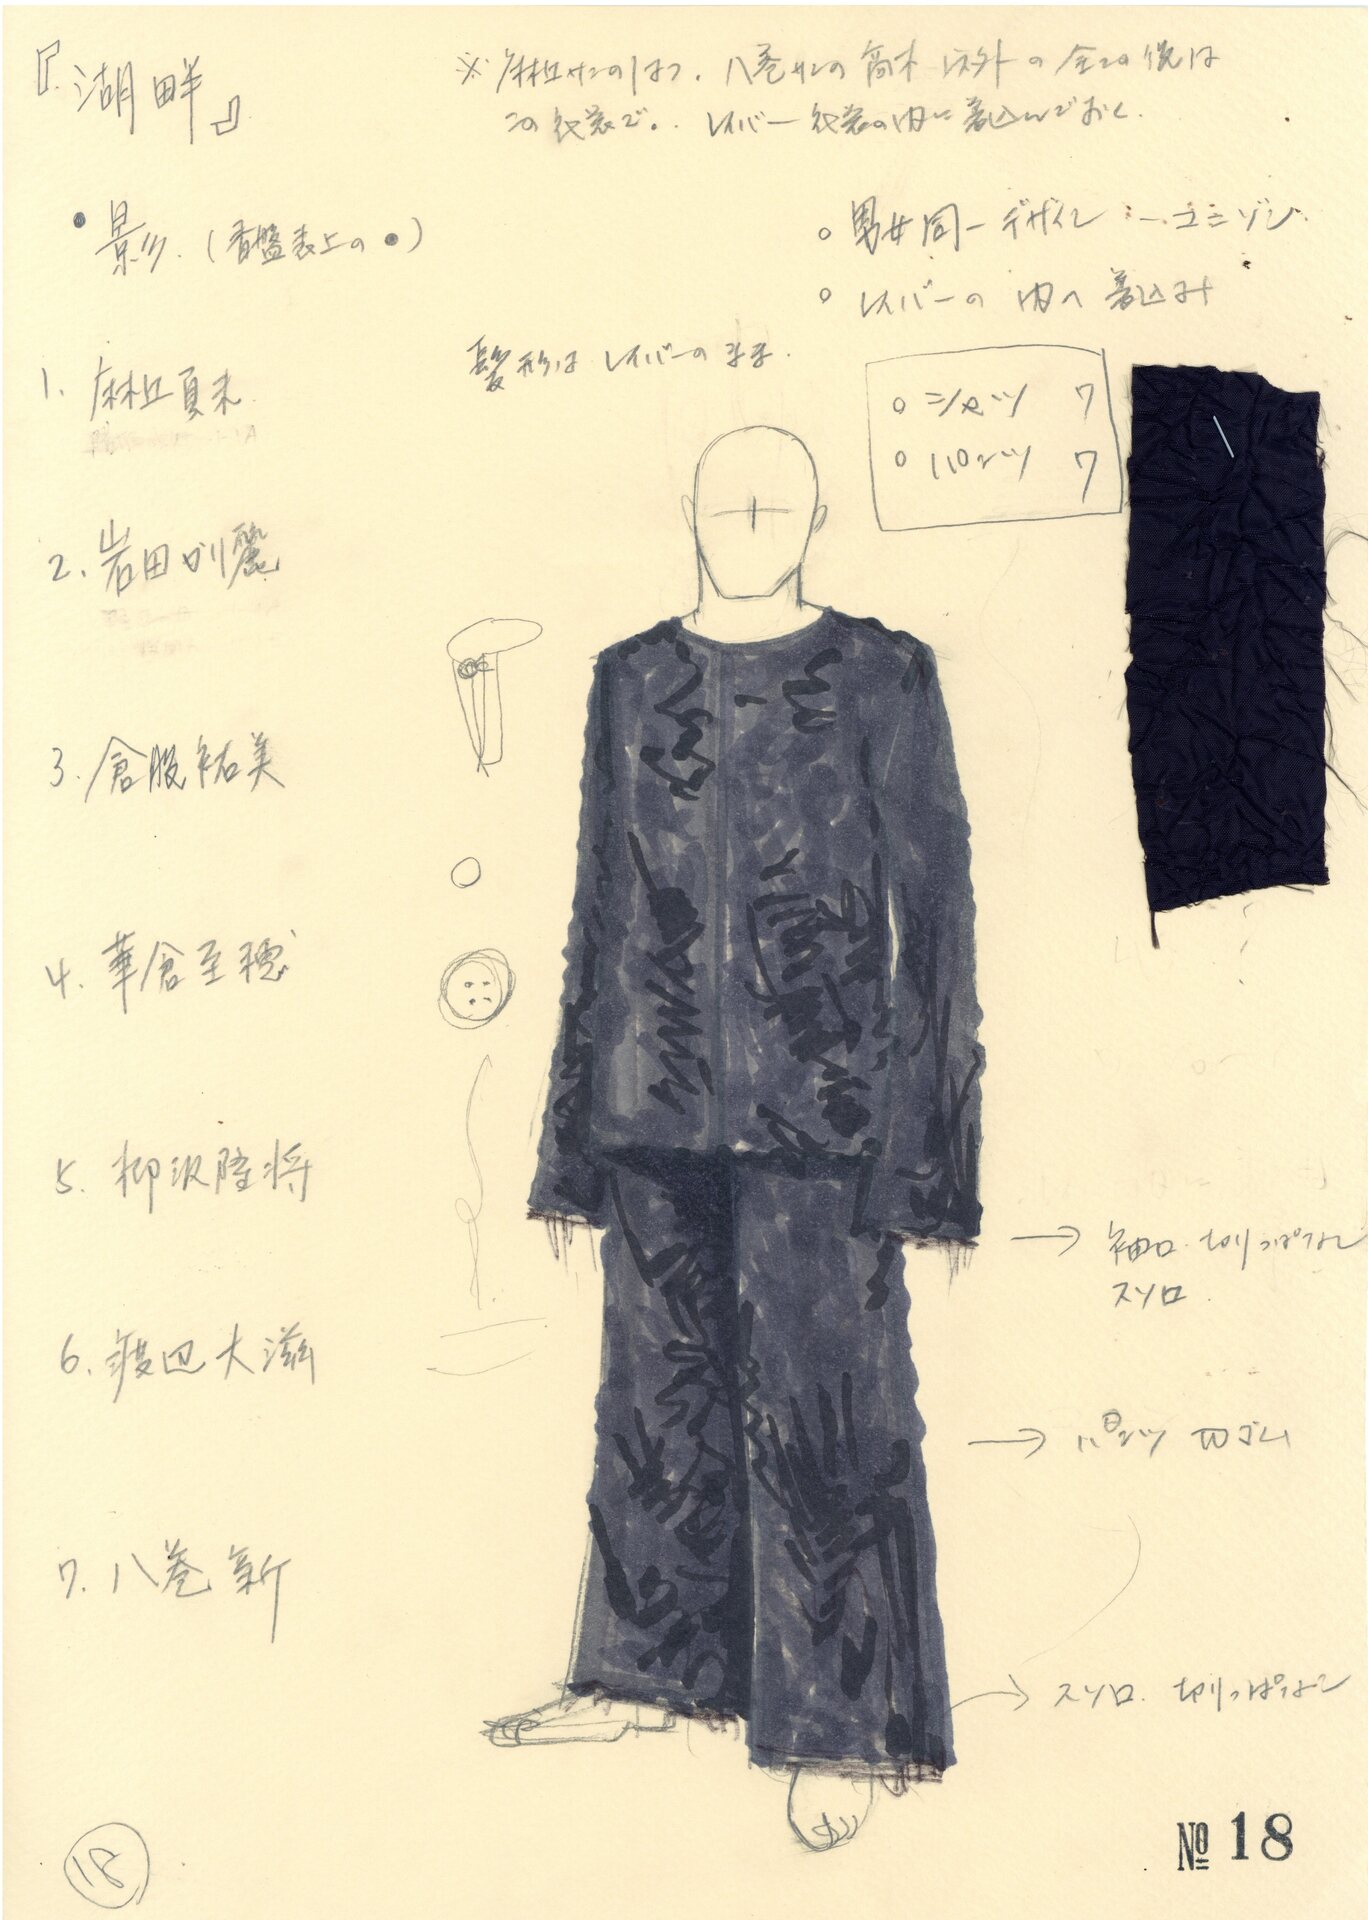 『湖畔』
※麻丘サンのはつ、八巻サンの高木以外の全ての役は
この衣裳で。レイバー衣裳の内に着込んでおく。
・影 (香盤表上の●)
○男女同一デザイン ユニゾン
○レイバーの内へ着込み
髪形はレイバーのまま.
○シャツ 7
○パンツ 7
1. 麻丘夏未
2. 岩田 麗
3. 倉股祐美
4. 華倉至穂
5. 柳沢隆将
6. 渡辺大滋
7. 八巻新
→ 袖口 切りっぱなし
スソ口
→ パンツ 凹ゴム
→ スソ口 切りっぱなし
18
№ 18